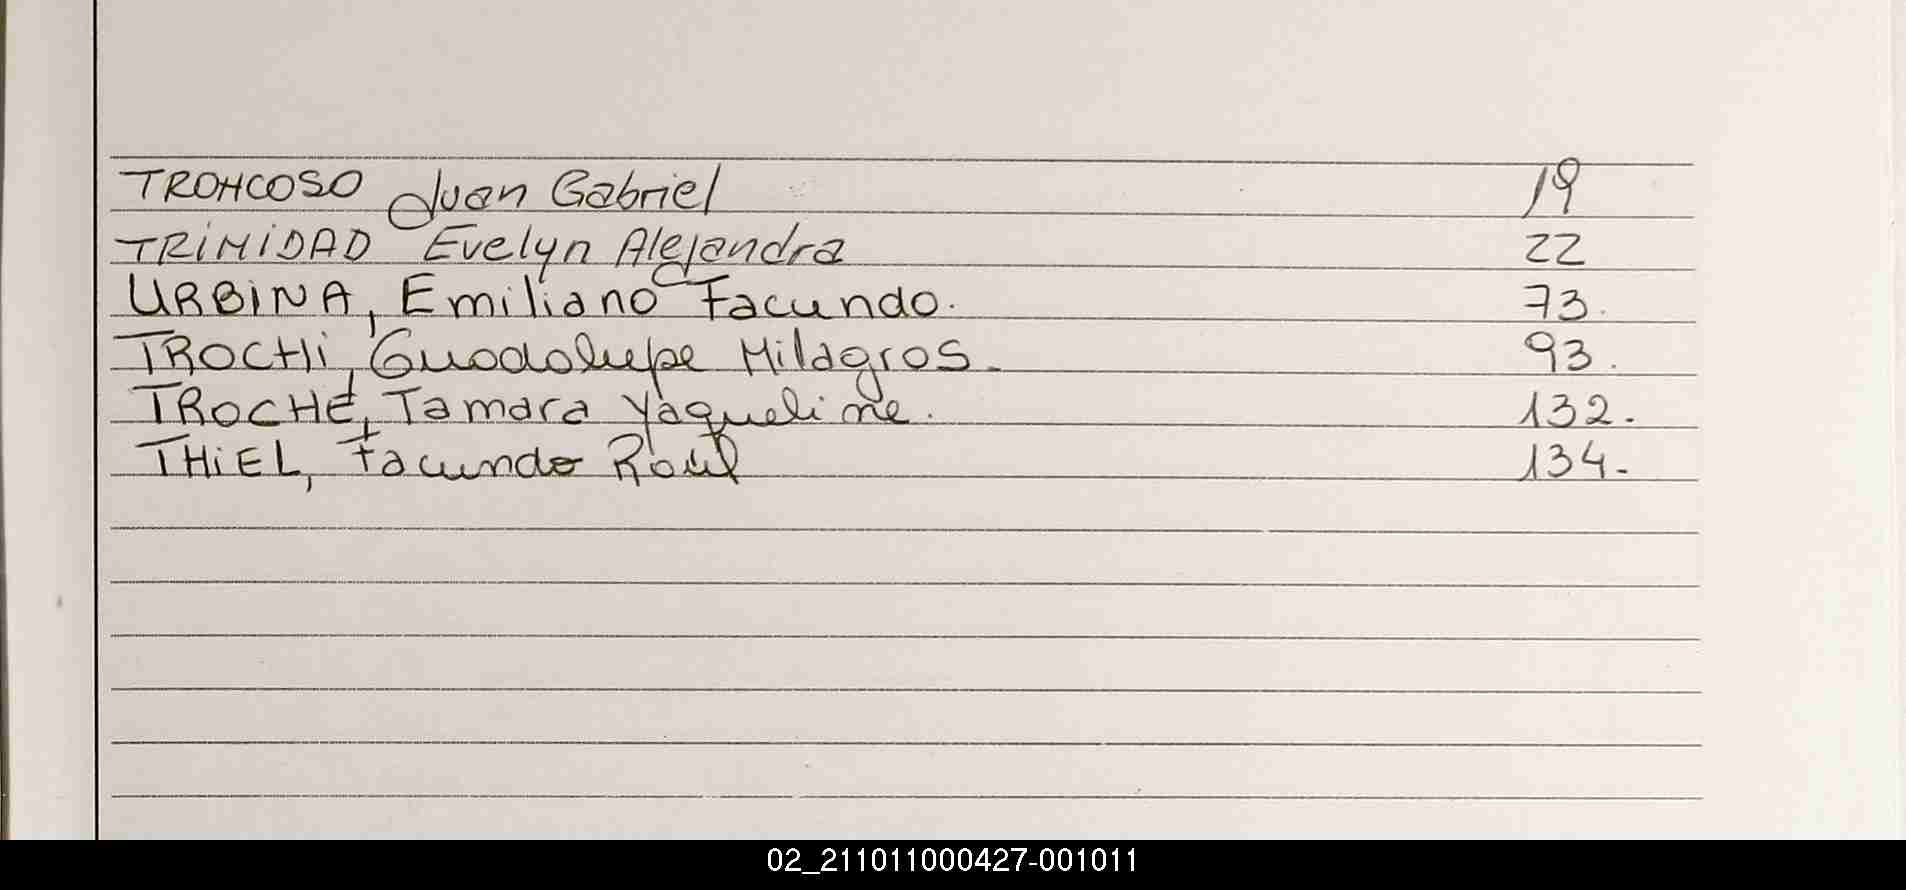 TRONCOSO Juan Gabriel 19
TRINIDAD Evelyn Alejandra 22
URBINA, Emiliano Facundo. 73.
TROCHI, Guadalupe Milagros. 93.
TROCHE, Tamara Yaqueline. 132.
THIEL, Facundo Raúl 134.
02_211011000427-001011